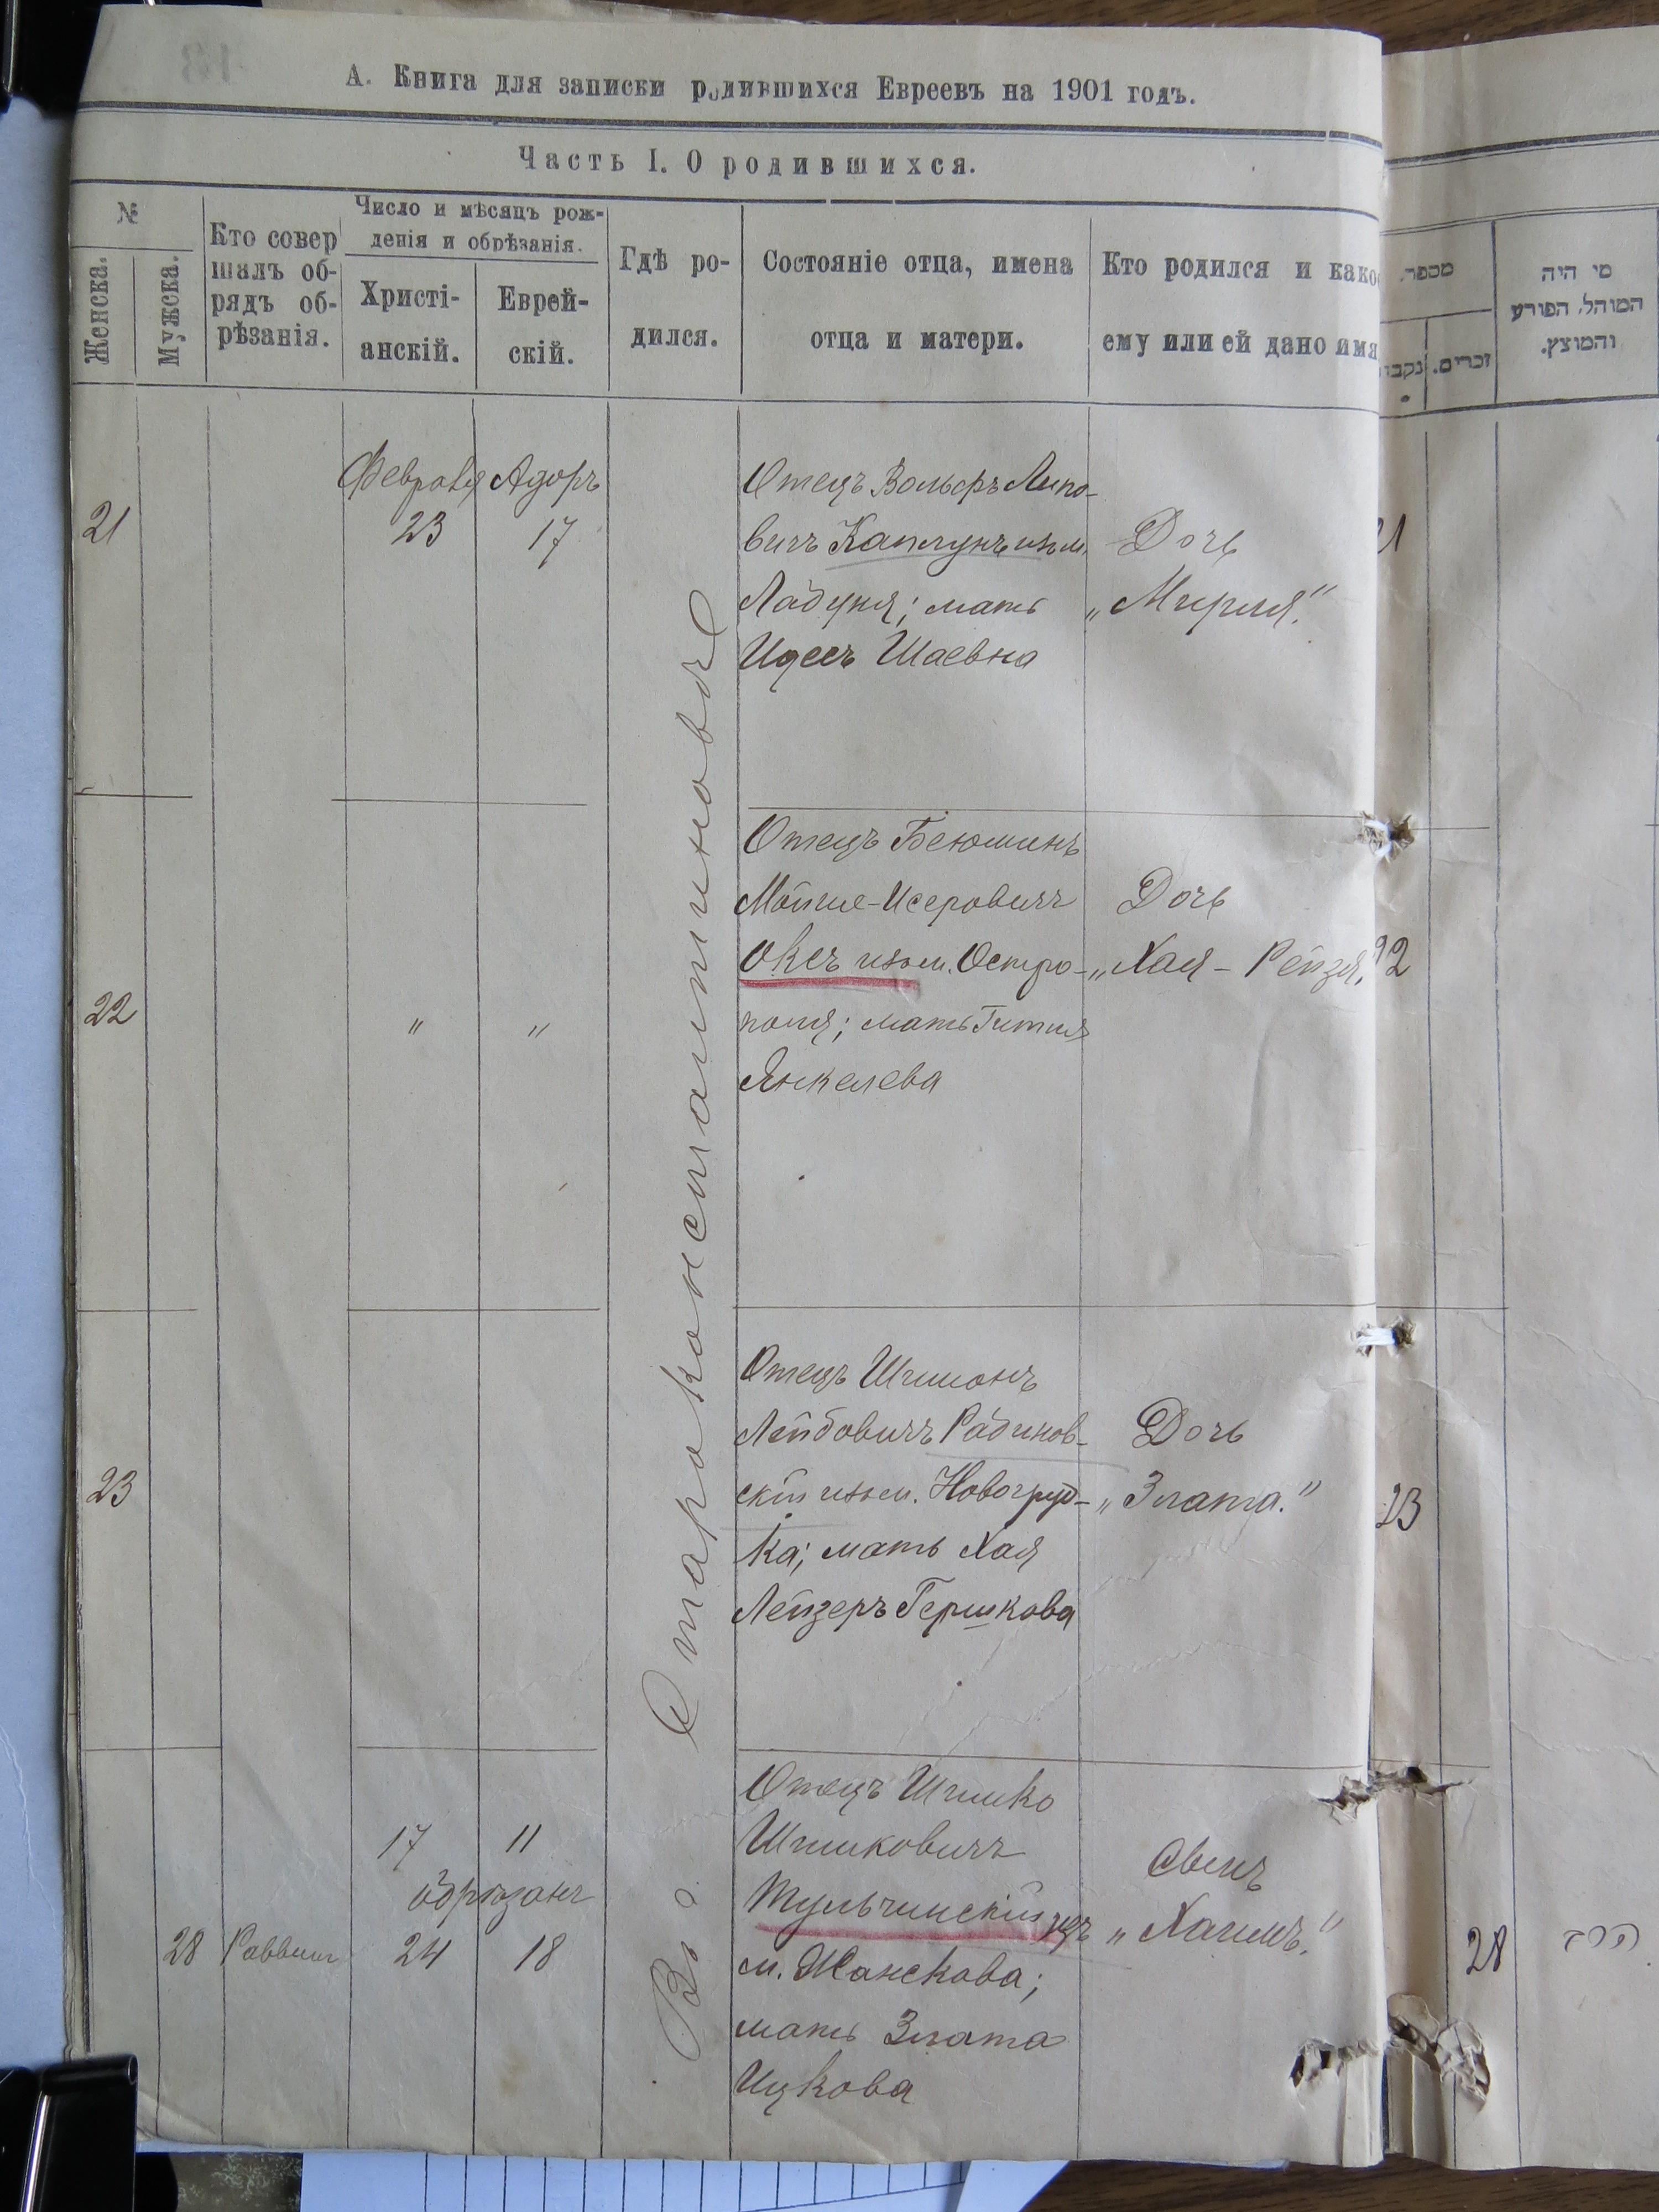 А. Книга для записки родившихся Евреевъ на 1901 годъ.
Часть I. О родившихся.
№
Женска.
Мужска.
Кто совер
шалъ об-
рядъ об-
рѣзанія.
Число и мѣсяцъ рож-
денія и обрѣзанія.
Христі-
анскій.
Еврей-
скій.
Гдѣ ро-
дился.
Состояніе отца, имена
отца и матери.
Кто родился и какое
ему или ей дано имя
מספר.
נקבו
זכרים.
מי היה
המוהל, הפורע
והמוצץ.
В с. Староконстантиновѣ
21
Февраля Адоръ
23 17
Отецъ Вольфъ Липо-
вичъ Каплунъ изъ м.
Ладуня; мать
Идесъ Шаевна
Дочь
„Мирия."
21
22
" "
Отецъ Беюминъ
Мойше-Исеровичъ
Оксъ изъ м. Остро-
поля; мать Гитля
Янкелева
Дочь
„Хая - Рейзя."
22
23
Отецъ Шимонъ
Лейбовичъ Рабинов-
скій изъ м. Новогруд-
ка; мать Хая
Лейзеръ Гершкова
Дочь
„Злата."
23
28 Раввинъ
17 11
обрѣзанъ
24 18
Отецъ Шимко
Шимковичъ
Тульчинскій изъ
м. Жанскова;
мать Злата
Ицкова
Сынъ
„Хаимъ."
28
הרב